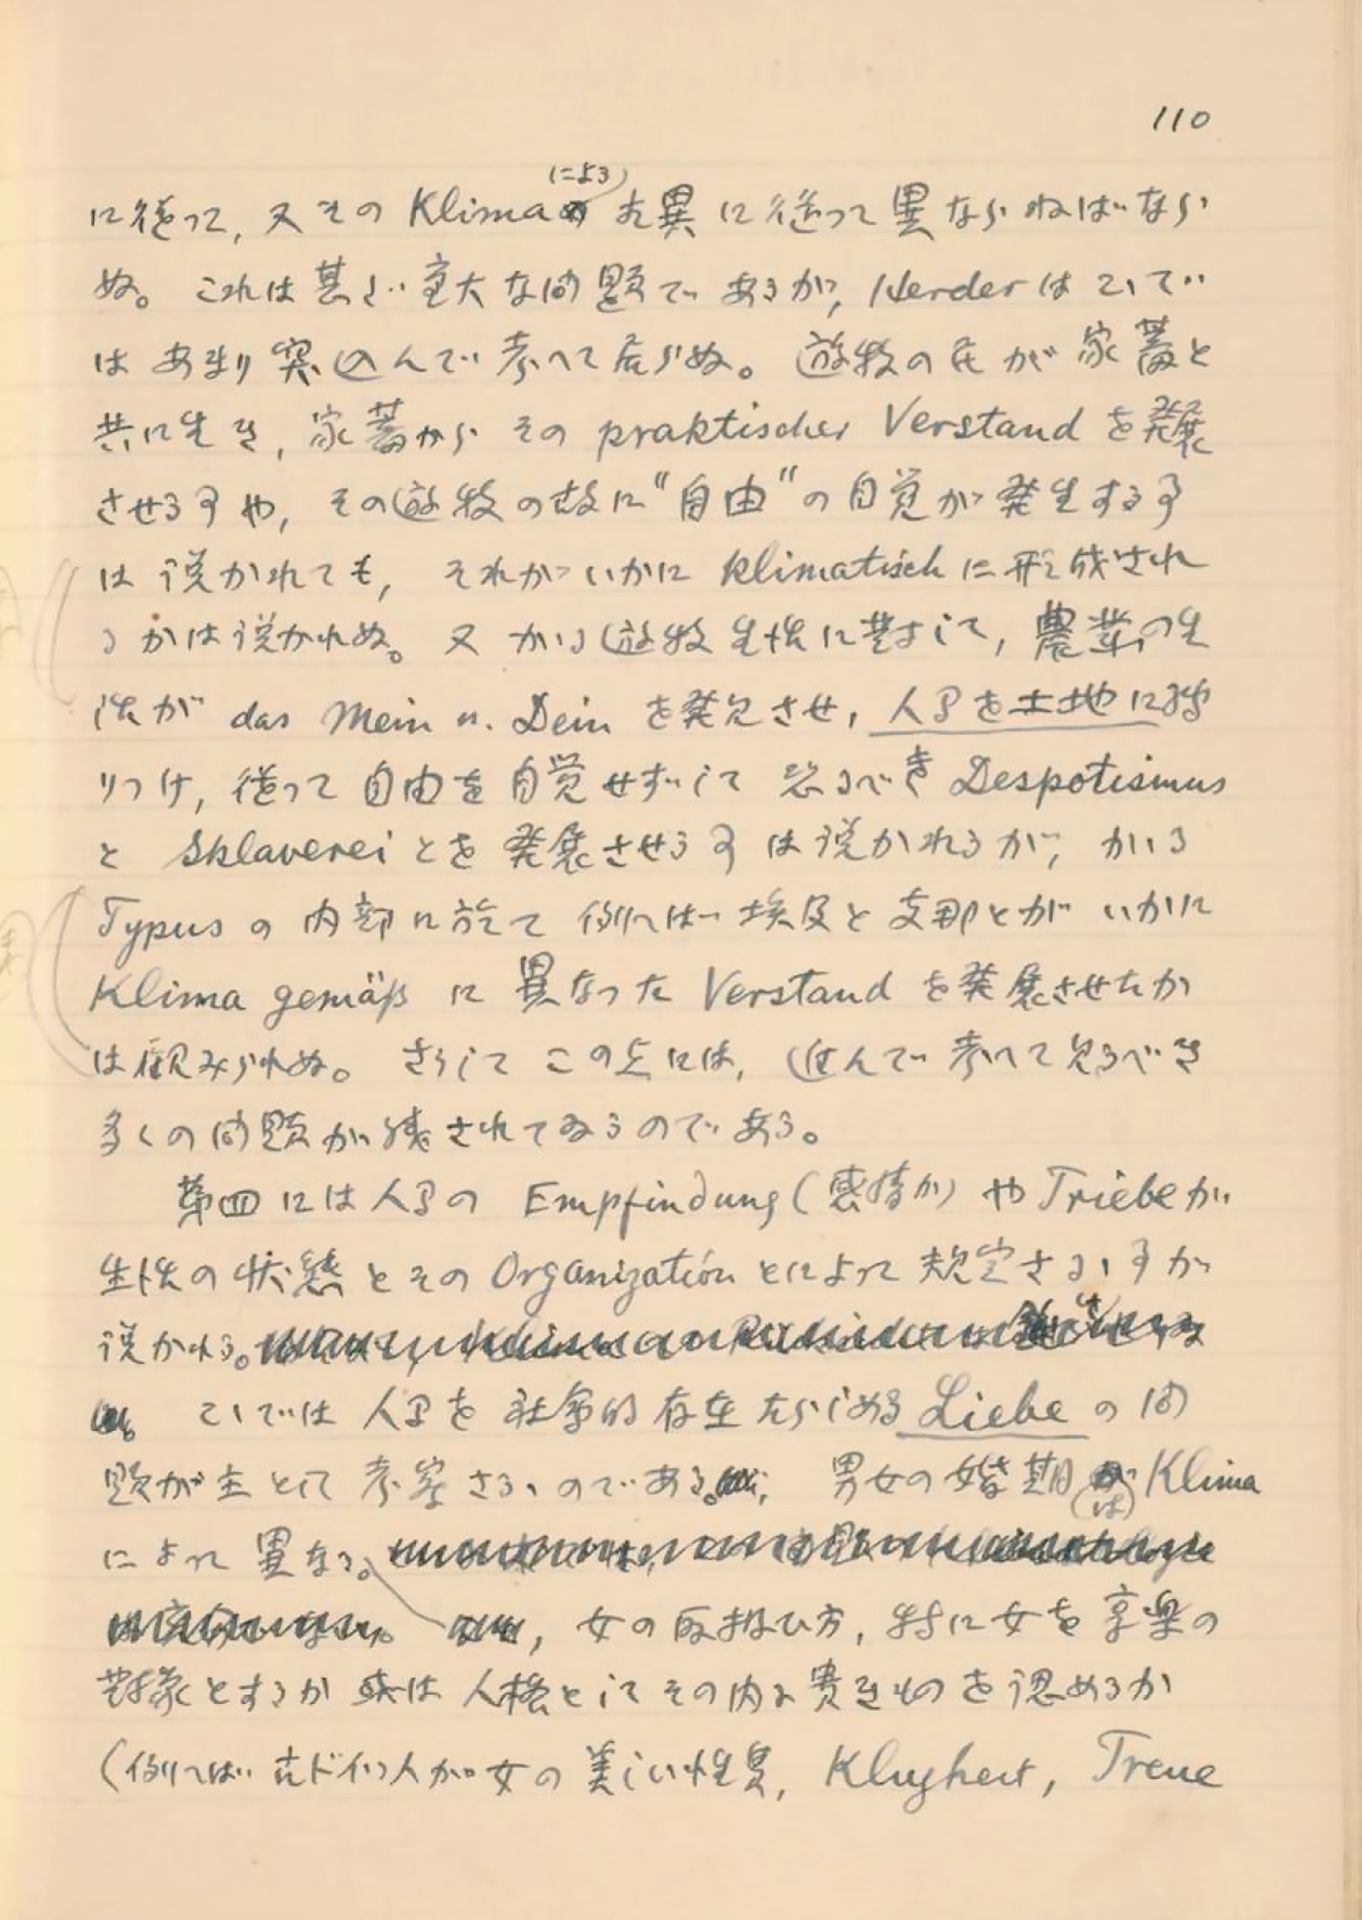 110
に従って, 又その Klima(による)差異に従って異ならねばなら
ぬ。これは甚だ重大な问題であるが, Herderはこゝで
はあまり突込んで考へて居らぬ。遊牧の民が家蓄と
共に生き, 家蓄からその praktischer Verstand を発展
させるヿや, その遊牧の故に“自由”の自覚が発生するヿ
は説かれても, それがいかに klimatisch に形成され
るかは説かれぬ。又かゝる遊牧生活に対して, 農業の生
活が das Mein u. Dein を発見させ, 人间を土地に縛
りつけ, 従って自由を自覚せずして恐るべき Despotismus
と Sklaverei とを発展させるヿは説かれるが, かゝる
Typus の内部に於て例へば埃及と支那とがいかに
Klima gemäß に異なった Verstand を発展させたか
は顧みられぬ。さうしてこの点には, 進んで考へて見るべき
多くの问題が残されてゐるのである。
第四には人间の Empfindung (感情か) や Triebe が
生活の状態とその Organization とによって規定さるゝヿが
説かれる。
こゝでは人间を社会的存在たらしめる Liebe の问
題が主として考察さるゝのである。男女の婚期(は) Klima
によって異なる。
, 女の取扱ひ方, 特に女を享楽の
対象とするか或は人格としてその内に貴きものを認めるか
(例へば古ドイツ人が女の美しい性質, Klugheit, Treue